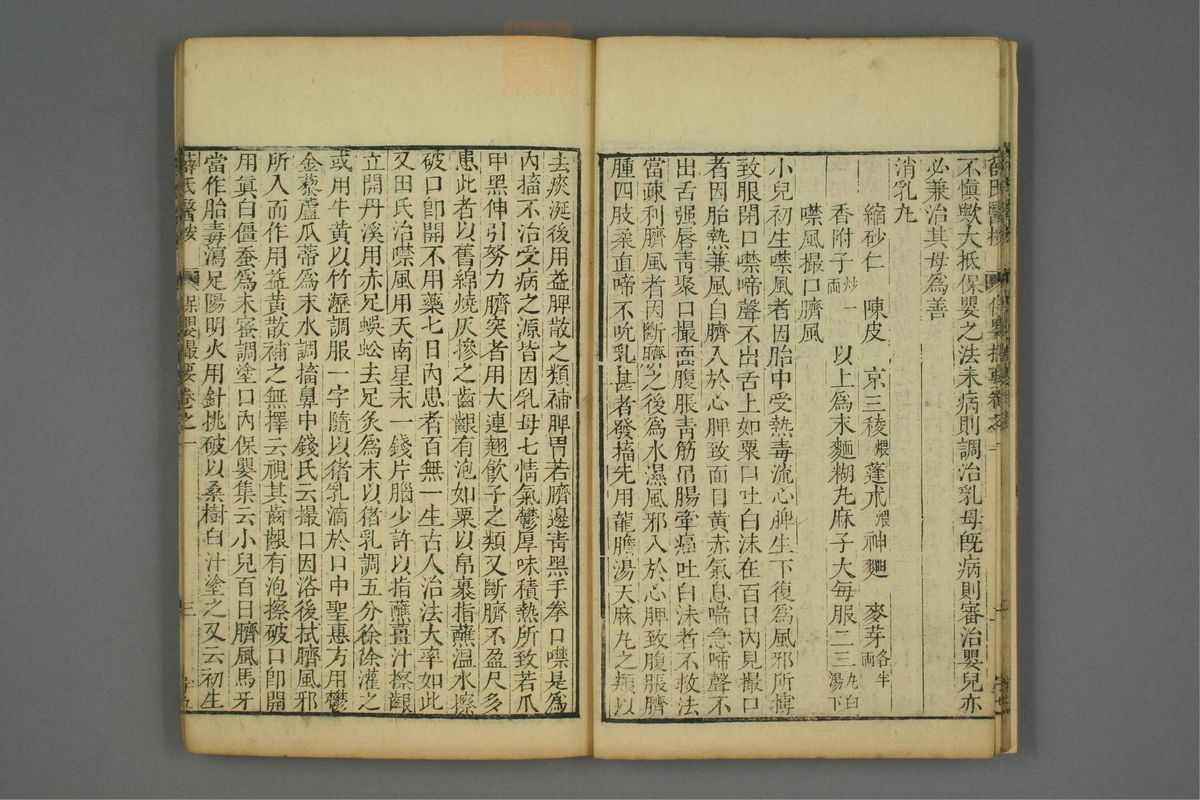 不愼歟大抵保嬰之法未病則調治乳母旣病則審治嬰兒亦
必兼治其母爲善
消乳丸
縮砂仁 陳皮 京三稜煨 蓬朮煨 神麯 麥芽各半兩
香附子炒一兩 以上爲末麵糊丸麻子大每服二三丸白湯下
噤風撮口臍風
小兒初生噤風者因胎中受熱毒流心脾生下復爲風邪所搏
致眼閉口噤啼聲不出舌上如粟口吐白沫在百日內見撮口
者因胎熱兼風自臍入於心脾致面目黃赤氣息喘急啼聲不
出舌强唇靑聚口撮靣腹脹靑筋吊腸牽痛吐白沫者不救法
當疎利臍風者因斷臍之後爲水濕風邪入於心脾致腹脹臍
腫四肢柔直啼不吮乳甚者發搐先用龍膽湯天麻丸之類以
去痰涎後用益脾散之類補脾胃若臍邊靑黑手拳口噤是爲
內搐不治受病之源皆因乳母七情氣鬱厚味積熱所致若爪
甲黑伸引努力臍突者用大連翹飮子之類又斷臍不盈尺多
患此者以舊綿燒灰摻之齒齦有泡如粟以帛裹指蘸温水擦
破口卽開不用藥七日內患者百無一生古人治法大率如此
又田氏治噤風用天南星末一錢片腦少許以指蘸薑汁擦齦
立開丹溪用赤足蜈蚣去足炙爲末以猪乳調五分徐徐灌之
或用牛黃以竹瀝調服一字隨以猪乳滴於口中聖惠方用鬱
金藜蘆瓜蒂爲末水調搐鼻中錢氏云撮口因浴後拭臍風邪
所入而作用益黃散補之無擇云視其齒齦有泡擦破口卽開
用眞白僵蚕爲末蜜調塗口內保嬰集云小兒百日臍風馬牙
當作胎毒瀉足陽明火用針挑破以桑樹白汁塗之又云初生
薛氏醫按 保嬰撮要卷之一 三